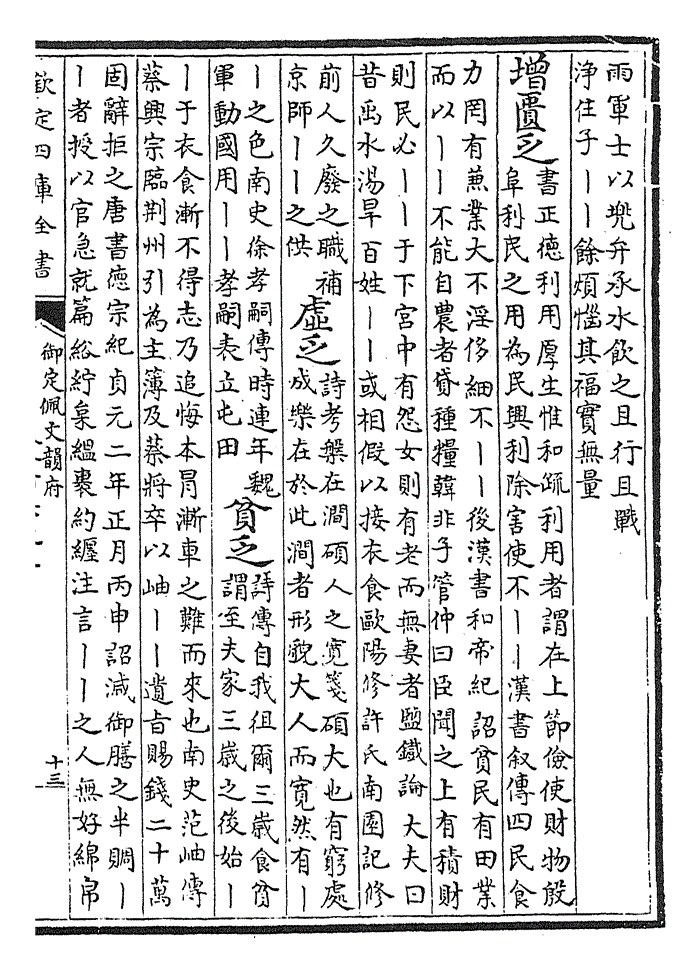 雨軍士以兠弁承水飲之且行且戰
淨住子丨丨餘煩惱其福實無量
增匱乏
書正德利用厚生惟和疏利用者謂在上節儉使財物殷
阜利民之用為民興利除害使不丨丨漢書叙傳四民食
力罔有兼業大不淫侈細不丨丨後漢書和帝紀詔貧民有田業
而以丨丨不能自農者貸種糧韓非子管仲曰臣聞之上有積財
則民必丨丨于下宮中有怨女則有老而無妻者鹽鐵論大夫曰
昔禹水湯旱百姓丨丨或相假以接衣食歐陽修許氏南園記修
前人久廢之職補
京師丨丨之供
虛乏
詩考槃在澗碩人之寬箋碩大也有窮處
成樂在於此澗者形貌大人而寬然有丨
丨之色南史徐孝嗣傳時連年魏
軍動國用丨丨孝嗣表立屯田
貧乏
詩傳自我徂爾三歲食貧
謂至夫家三歲之後始丨
丨于衣食漸不得志乃追悔本冒漸車之難而來也南史范岫傳
蔡興宗臨荆州引為主簿及蔡將卒以岫丨丨遺旨賜錢二十萬
固辭拒之唐書德宗紀貞元二年正月丙申詔減御膳之半賙丨
丨者授以官急就篇綌紵枲緼裹約纏注言丨丨之人無好綿帛
欽定四庫全書
御定佩文韻府
十三